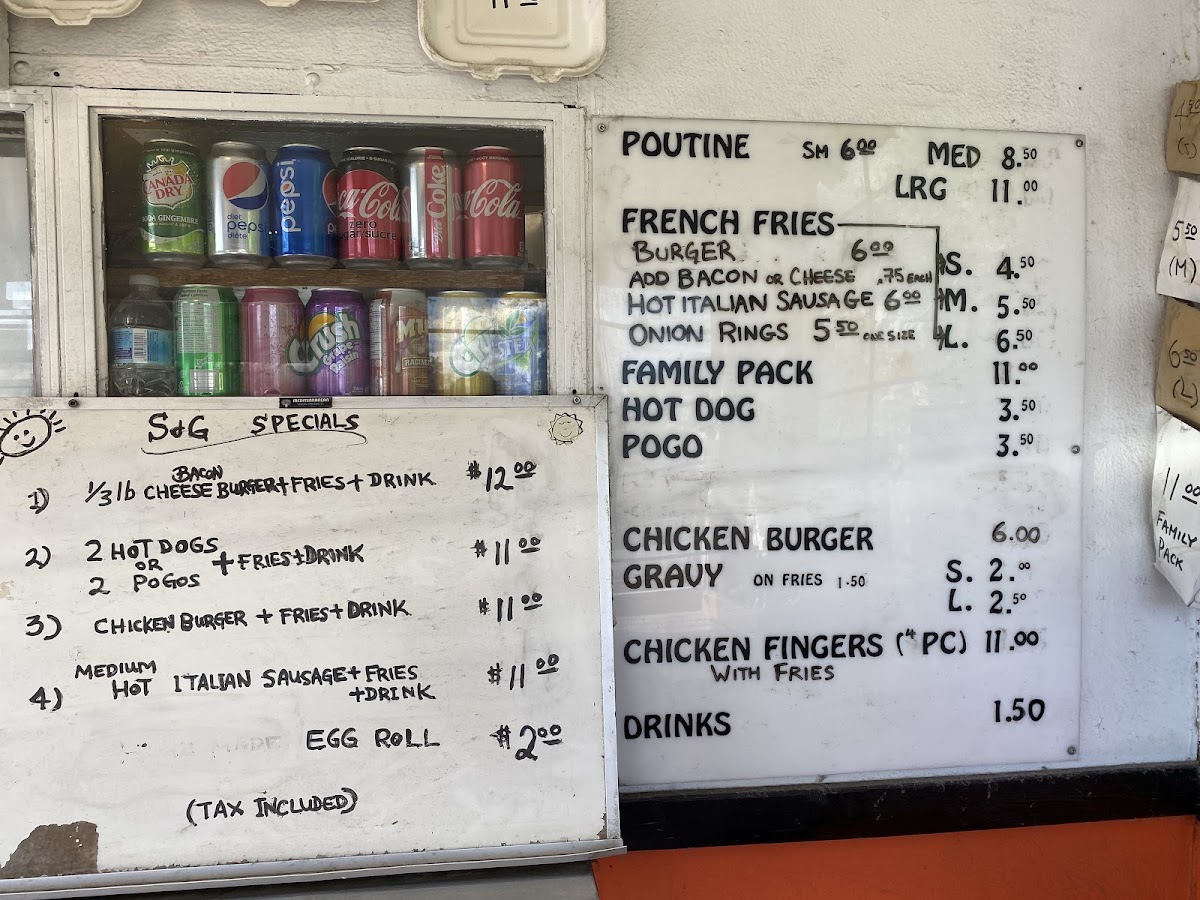 CANADA
DRY
SODA GINGEMBRE
diet
pepsi
diète
pepsi
Coca-Cola
zero
sugar sucre
Coke
Coca-Cola
Crush
Grape
Raisin
Mug
RACINE
S&G SPECIALS
1) 1/3 lb BACON CHEESE BURGER + FRIES + DRINK $12.00
2) 2 HOT DOGS
OR + FRIES + DRINK $11.00
2 POGOS
3) CHICKEN BURGER + FRIES + DRINK $11.00
4) MEDIUM
HOT ITALIAN SAUSAGE + FRIES $11.00
+ DRINK
EGG ROLL $2.00
(TAX INCLUDED)
POUTINE SM 6.00 MED 8.50
LRG 11.00
FRENCH FRIES
BURGER 6.00 S. 4.50
ADD BACON OR CHEESE .75 EACH
HOT ITALIAN SAUSAGE 6.00 M. 5.50
ONION RINGS 5.50 ONE SIZE L. 6.50
FAMILY PACK 11.00
HOT DOG 3.50
POGO 3.50
CHICKEN BURGER 6.00
GRAVY ON FRIES 1.50 S. 2.00
L. 2.50
CHICKEN FINGERS (4 PC) 11.00
WITH FRIES
DRINKS 1.50
5.50
(M)
6.50
(L)
11.00
FAMILY
PACK